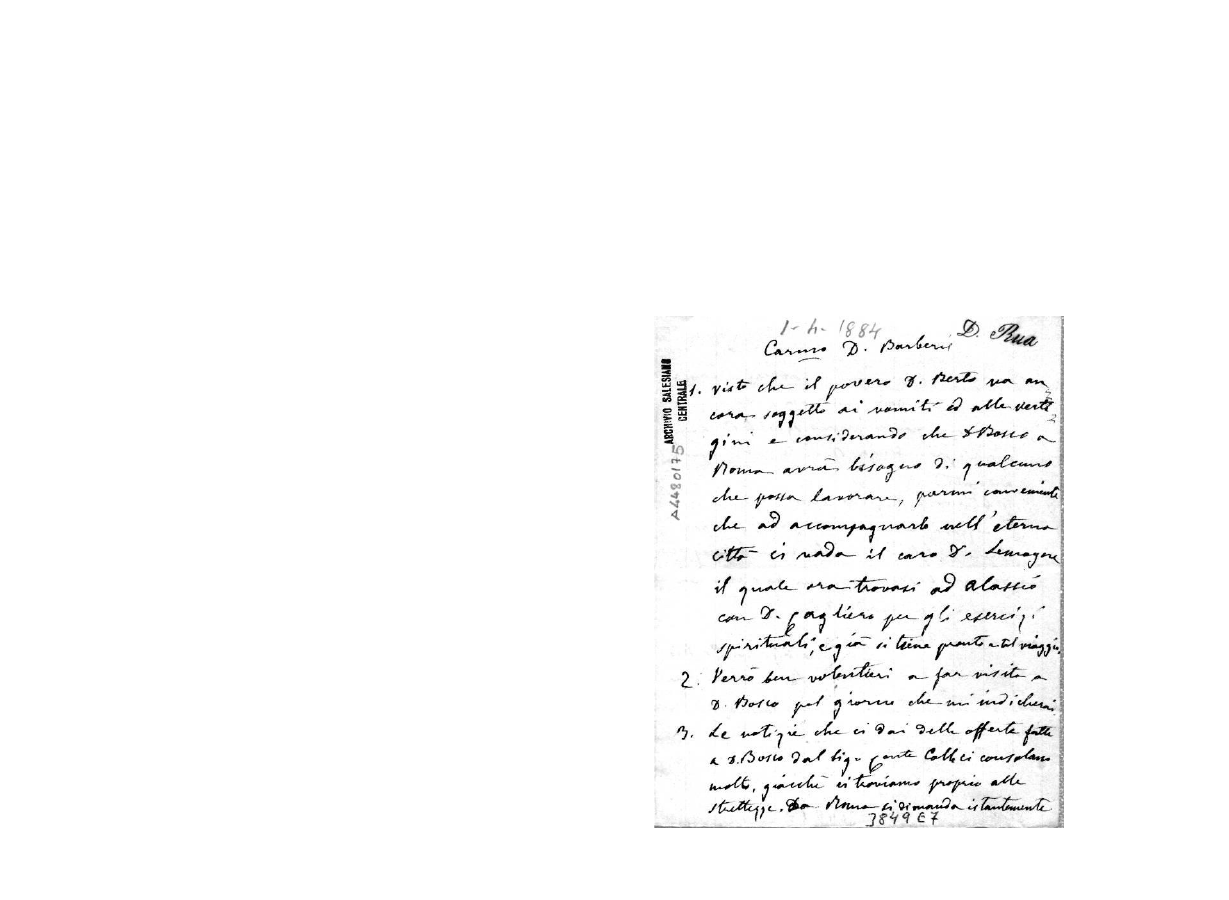 1-4-1884
D. Rua
Carmo D. Barberis
ARCHIVIO SALESIANO
CENTRALE
A4480175
1. Visto che il povero D. Berto va an
cora soggetto ai vomiti ed alle verti
gini e considerando che D Bosco a
Roma avrà bisogno di qualcuno
che possa lavorare, parmi conveniente
che ad accompagnarlo nell'eterna
città ci vada il caro D. Lemoyne
il quale ora trovasi ad Alassio
con D. Cagliero per gli esercizi
spirituali, e già si tiene pronto a tal viaggio.
2. Verrò ben volentieri a far visita a
D. Bosco pel giorno che mi indicherai
3. Le notizie che ci dai delle offerte fatte
a D. Bosco dal Sig. Conte Colle ci consolano
molto, giacchè ci troviamo proprio alle
strettezze. Da Roma si dimanda istantemente
3849 E7